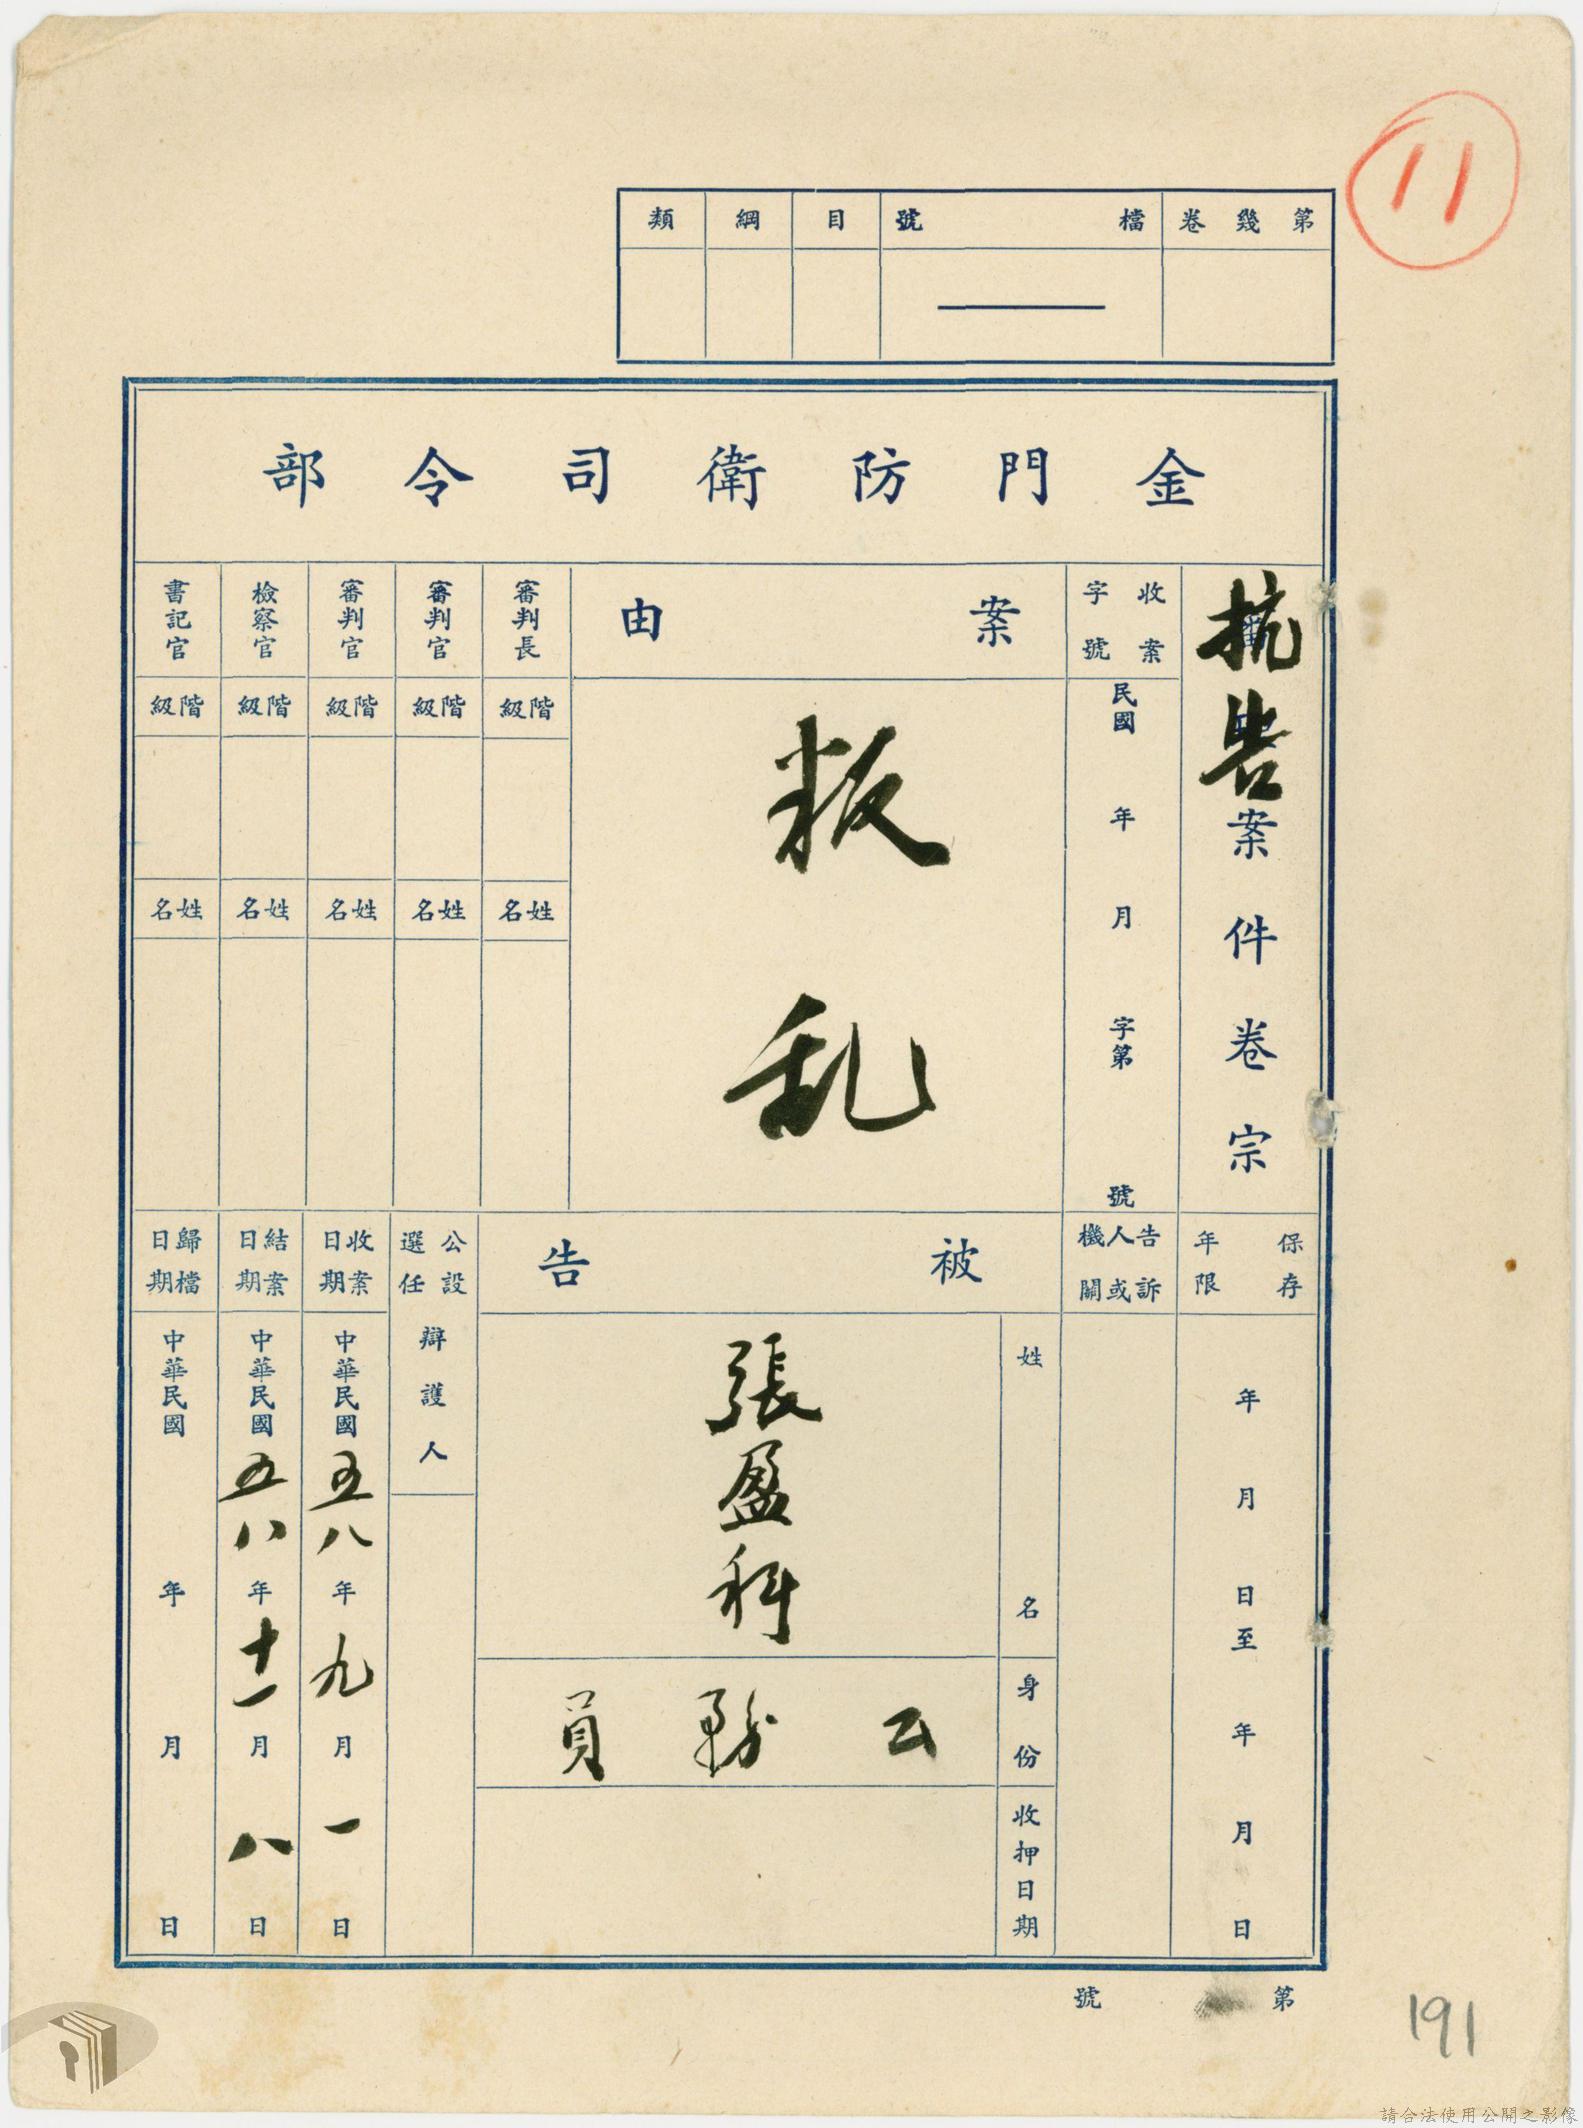 11
第幾卷
檔號
目
綱
類
金門防衛司令部
抗告案件卷宗
收案字號
民國 年 月 字第 號
案由
叛乱
審判長
階級
姓名
審判官
階級
姓名
審判官
階級
姓名
檢察官
階級
姓名
書記官
階級
姓名
保存年限
年 月 日至 年 月 日
告訴人或機關
被告
姓名
張盈科
身份
公務員
收押日期
公設選任辯護人
收案日期
中華民國五八年九月一日
結案日期
中華民國五八年十一月八日
歸檔日期
中華民國 年 月 日
第 號
191
請合法使用公開之影像